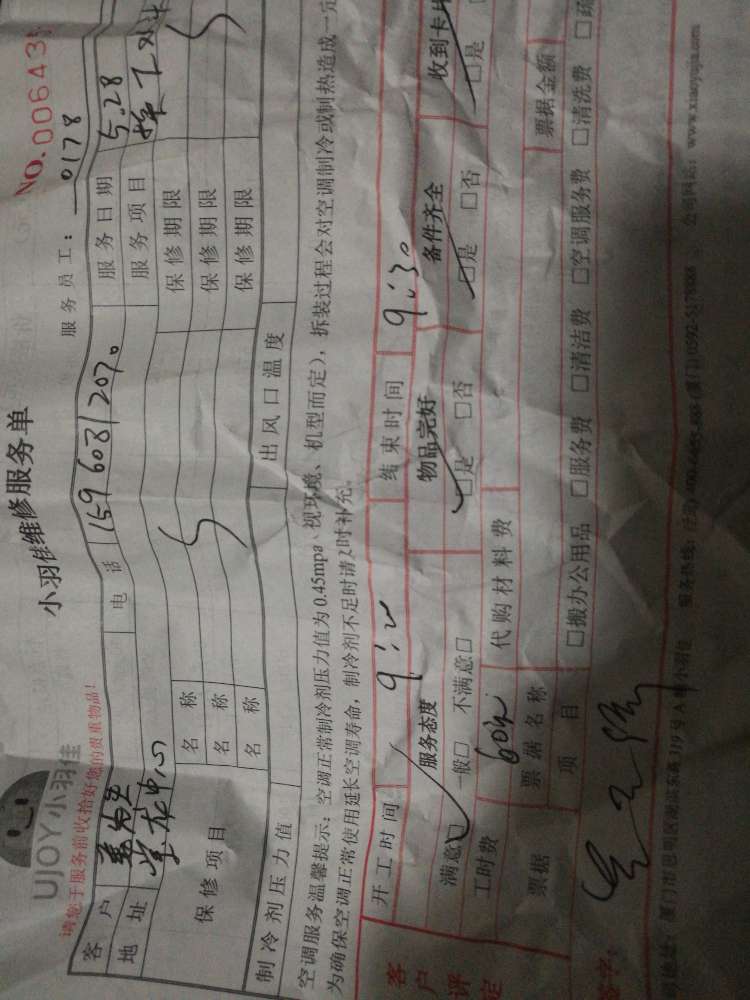 UJOY小羽佳
小羽佳维修服务单
NO.00643
请您于服务前收拾好您的贵重物品!
服务员工: 0178
客户 电话 15960812070 服务日期 5.28
地址 服务项目
保修项目 名称 保修期限
名称 保修期限
名称 保修期限
制冷剂压力值 出风口温度
空调服务温馨提示:空调正常制冷剂压力值为0.45mpa、视环境、机型而定),拆装过程会对空调制冷或制热造成一定
为确保空调正常使用延长空调寿命,制冷剂不足时请及时补充。
开工时间 结束时间 9:30
客户评定 服务态度 物品完好 备件齐全 收到卡片
满意□ 一般□ 不满意□ □是 □否 □是 □否 □是
工时费 60 代购材料费
票据 票据名称 票据金额
项目 □搬办公用品 □服务费 □清洁费 □空调服务费 □清洗费 □疏
签字:
地址:厦门市思明区湖滨东路319号A 小羽佳 服务热线: (厦门)0592-5178888 公司网站:www.xiaoyujia.com